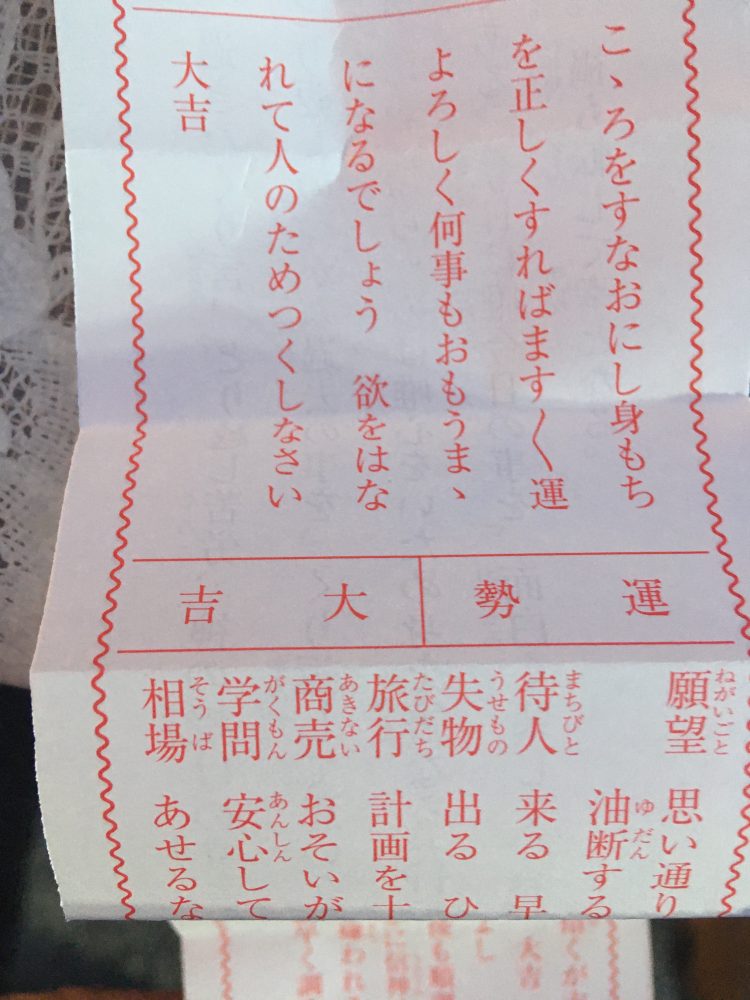 こゝろをすなおにし身もち
を正しくすればます〱運
よろしく何事もおもうまゝ
になるでしょう 欲をはな
れて人のためつくしなさい
大吉
運勢 大吉
願望 思い通り
油断する
待人 来る 早
失物 出る ひ
旅行 計画を十
商売 おそいが
学問 安心して
相場 あせるな
ねがいごと
ゆだん
まちびと
うせもの
たびだち
あきない
がくもん
あんしん
そうば
大吉